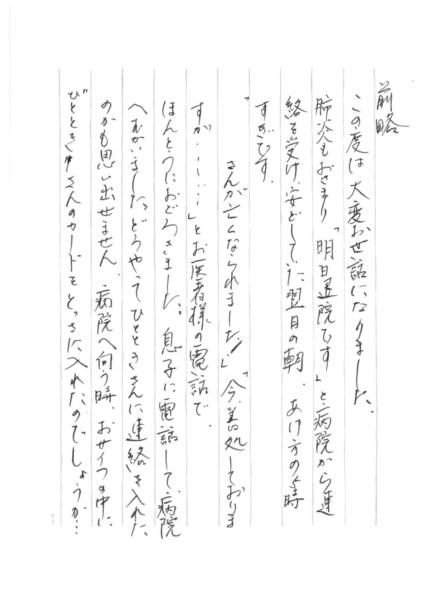 前略
この度は大変お世話になりました。
肺炎もおさまり「明日退院です」と病院から連
絡を受け、安どしていた翌日の朝、あけ方の4時
すぎです。
「　　さんが亡くなられました」「今、善処しておりま
すが‥‥‥」とお医者様の電話で、
ほんとうにおどろきました。息子に電話して、病院
へむかいました。どうやってひとときさんに連絡を入れた
のかも思い出せません。病院へ向う時、おサイフの中に
ひとときさんのカードをとっさに入れたのでしょうか…